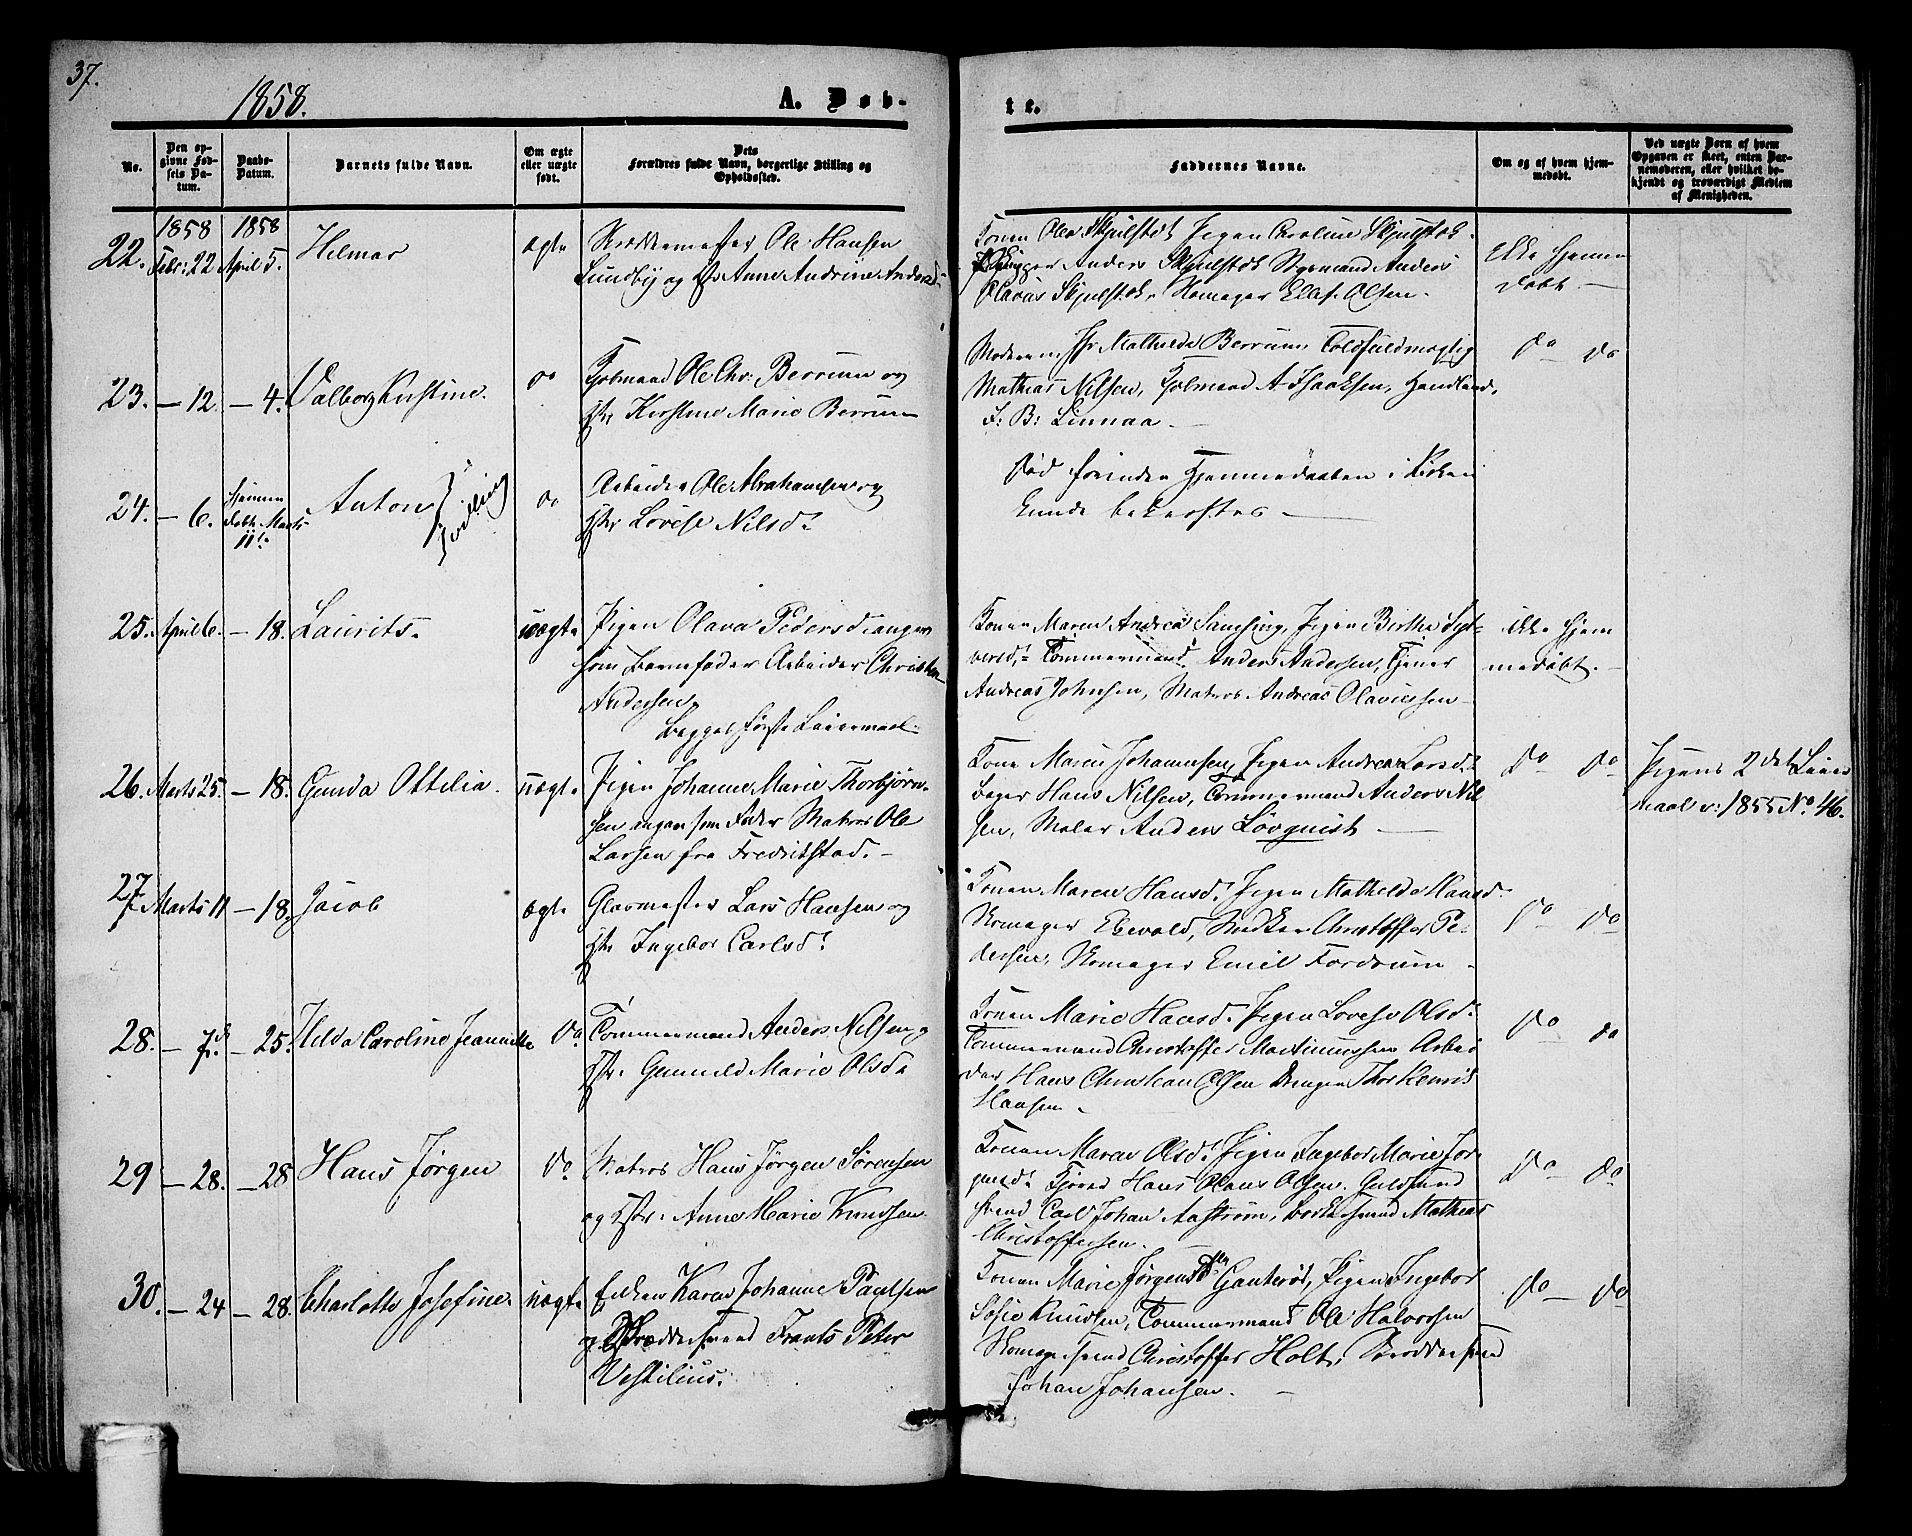 37.
1858.
A. Døb-
te.
No.
Den op-
givne Fød-
sels Da-
tum.
Daabs-
Datum.
Barnets fulde Navn.
Om ægte
eller uægte
født.
Dets
Forældres fulde Navn, borgerlige Stilling og
Opholdssted.
Faddernes Navne.
Om og af hvem hjem-
medøbt.
Ved uægte Børn af hvem
Opgaven er skeet, enten Bar-
nemoderen, eller hvilket be-
kjendt og troværdigt Medlem
af Menigheden.
1858 1858
22. Febr: 22 April 5. Helmar ægte
Skræddermester Ole Hansen
Lundby og Hstr Anne Andrine Andersd
Konen Olea Skjulstok Pigen Caroline Skjulstok
Anders Skjulstok Styrmand Anders
Olavus Skjulstok, Skomager Ellef Olsen.
Ikke hjemme
døbt
23. — 12. — 4. Valborg Kirstine. do
Tolmand Ole Chr: Berrum og
Hstr Kirstine Marie Berrum
Moderen, Jfr Mathilde Berrum, Toldfuldmægtig
Mathias Nilsen, Tolmand A Isaaksen, Handland.
F: B: Linnaa
do do
24. — 6. Hjemme
døbt Marts
11te Anton Tvilling do
Arbeider Ole Abrahamsen og
Hstr Lovise Nilsd.
Død forinden Hjemmedaaben i Kirken
kunde bekræftes
25. April 6. — 18. Laurits. uægte
Pigen Olava Pedersd angav
som Barnefader Arbeider Christen
Andersen.
Begges første Leiermaal.
Konen Maren Andrea Samsing, Pigen Birthe Syl-
versd, Tømmermand Anders Andersen, Tjener
Andreas Johnsen, Matros Andreas Olavussen
ikke hjem
medøbt.
26. Marts 25. — 18. Gunda Ottilia. uægte
Pigen Johanne Marie Thorbjørn-
sen angav som Fader Matros Ole
Larsen fra Fredrikstad.
Kone Maren Johannesen, Pigen Andrea Larsd.
Bager Hans Nilsen, Tømmermand Anders Nil
sen, Maler Anders Løvquist
do do
Pigens 2det Leier
maal v: 1855 No 46.
27 Marts 11 — 18. Jacob ægte
Glarmester Lars Hansen og
Hstr Ingebor Carlsd.
Konen Maren Hansd. Pigen Mathilde Hansd.
Skomager Ebevold, Snedker Christoffer Pe-
dersen, Skomager Emil Fordrum
do do
28. — 7. — 25. Hilda Caroline Jeanette do
Tømmermand Anders Nilsen, og
Hstr. Gunnild Marie Olsd.
Konen Marie Hansd. Pigen Lovise Olsd.
Tømmermand Christoffer Martinussen Arbei
der Hans Christian Olsen Drengen Thor Henrik
Hansen
do do
29 — 28. — 28 Hans Jørgen do.
Matros Hans Jørgen Sørensen
og Hstr. Anne Marie Knudsen.
Konen Maren Olsd. Pigen Ingebor Marie Jør
gensd. Hans Olaus Olsen. Guldsmed
svend Carl Johan Aastrøm, svend Mathias
Christoffersen.
do do
30. — 24 — 28. Charlotte Josefine. uægte
Enken Karen Johanne Paulsen
og Skræddersvend Frants Peter
Vestilius.
Konen Marie Jørgensd Ganterød, Pigen Ingebor
Sofie Knudsen, Tømmermand Ole Halvorsen
Skomagersvend Christoffer Holt, Skræddersvend
Johan Johansen.
do do